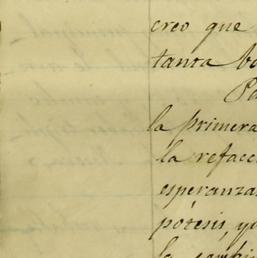 creo que
tanta bo
Pa
la primera
la refacc
esperanza
pótesis, y
la cambi